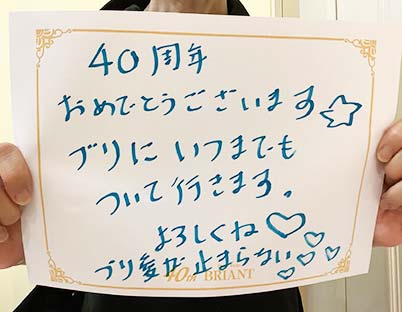 40周年
おめでとうございます☆
ブリに いつまでも
ついて行きます。
よろしくね♡
ブリ愛が止まらない♡♡♡
40th BRIANT